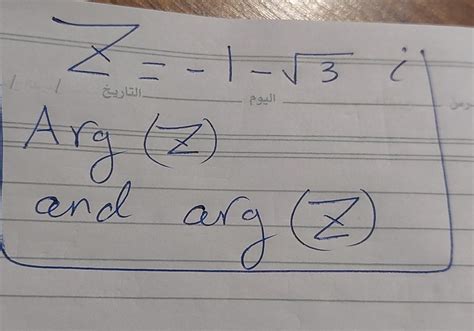 Z = -1 - √3 i
التاريخ اليوم
Arg (Z)
and arg (Z)